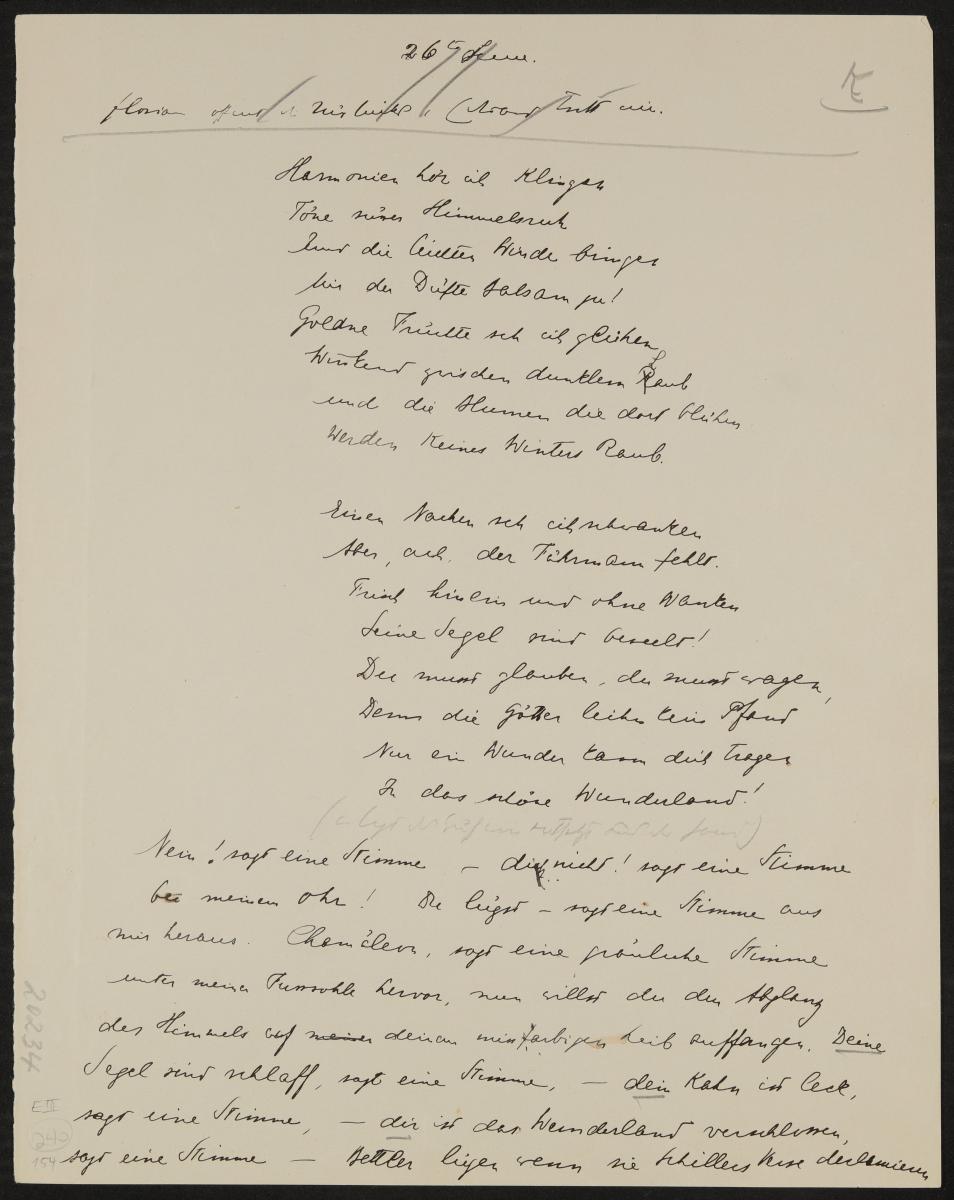 26te Szene.
K
Florian öffnet die
Harmonien hör ich Klingen
Töne süsser Himmelsruh
Und die leichten Winde bringen
Mir der Düfte Balsam zu!
Goldne Früchte seh ich glühen
Winkend zwischen dunklem Laub
und die Blumen die dort blühen
Werden Keines Winters Raub.
Einen Nachen seh ich schwanken
Aber, ach, der Fährmann fehlt.
Frisch hinein und ohne Wanken
Seine Segel sind beseelt!
Du musst glauben, du musst wagen,
Denn die Götter leihn kein Pfand
Nur ein Wunder kann dich tragen
In das schöne Wunderland!
Nein! sagt eine Stimme – dich nicht! sagt eine Stimme
bei meinem Ohr! Du lügst – sagt eine Stimme aus
mir heraus. Chamäleon, sagt eine gräuliche Stimme
unter meiner Fussohle hervor, nun willst du den Abglanz
des Himmels auf meinen deinem missfarbigen Leib auffangen. Deine
Segel sind schlaff, sagt eine Stimme, – dein Kahn ist leck,
sagt eine Stimme, – dir ist das Wunderland verschlossen,
sagt eine Stimme – Bettler lügen wenn sie Schillers Verse declamieren
20234
E III
240
154